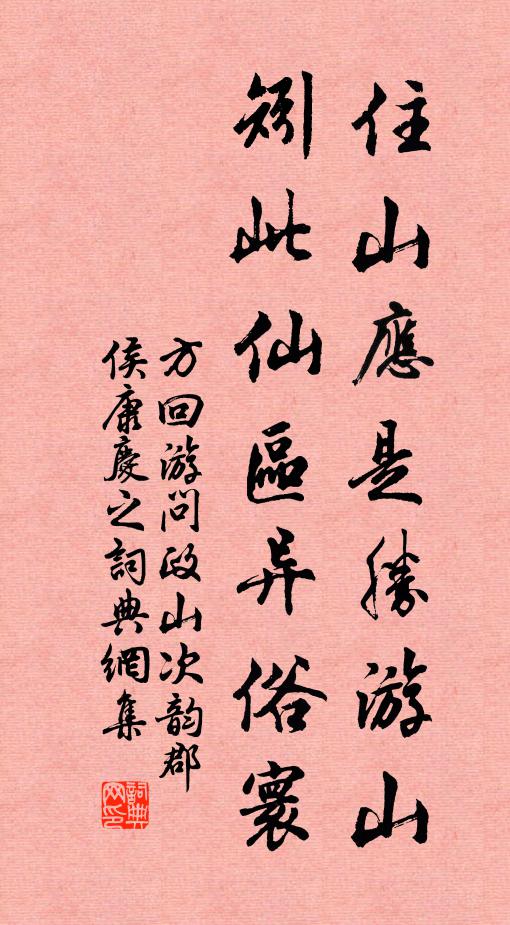 住山應是勝游山
矧此仙區异俗寰
方回游問政山次韵郡
侯康慶之詞典網集
詞典網印